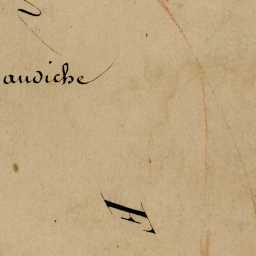 audiche
F